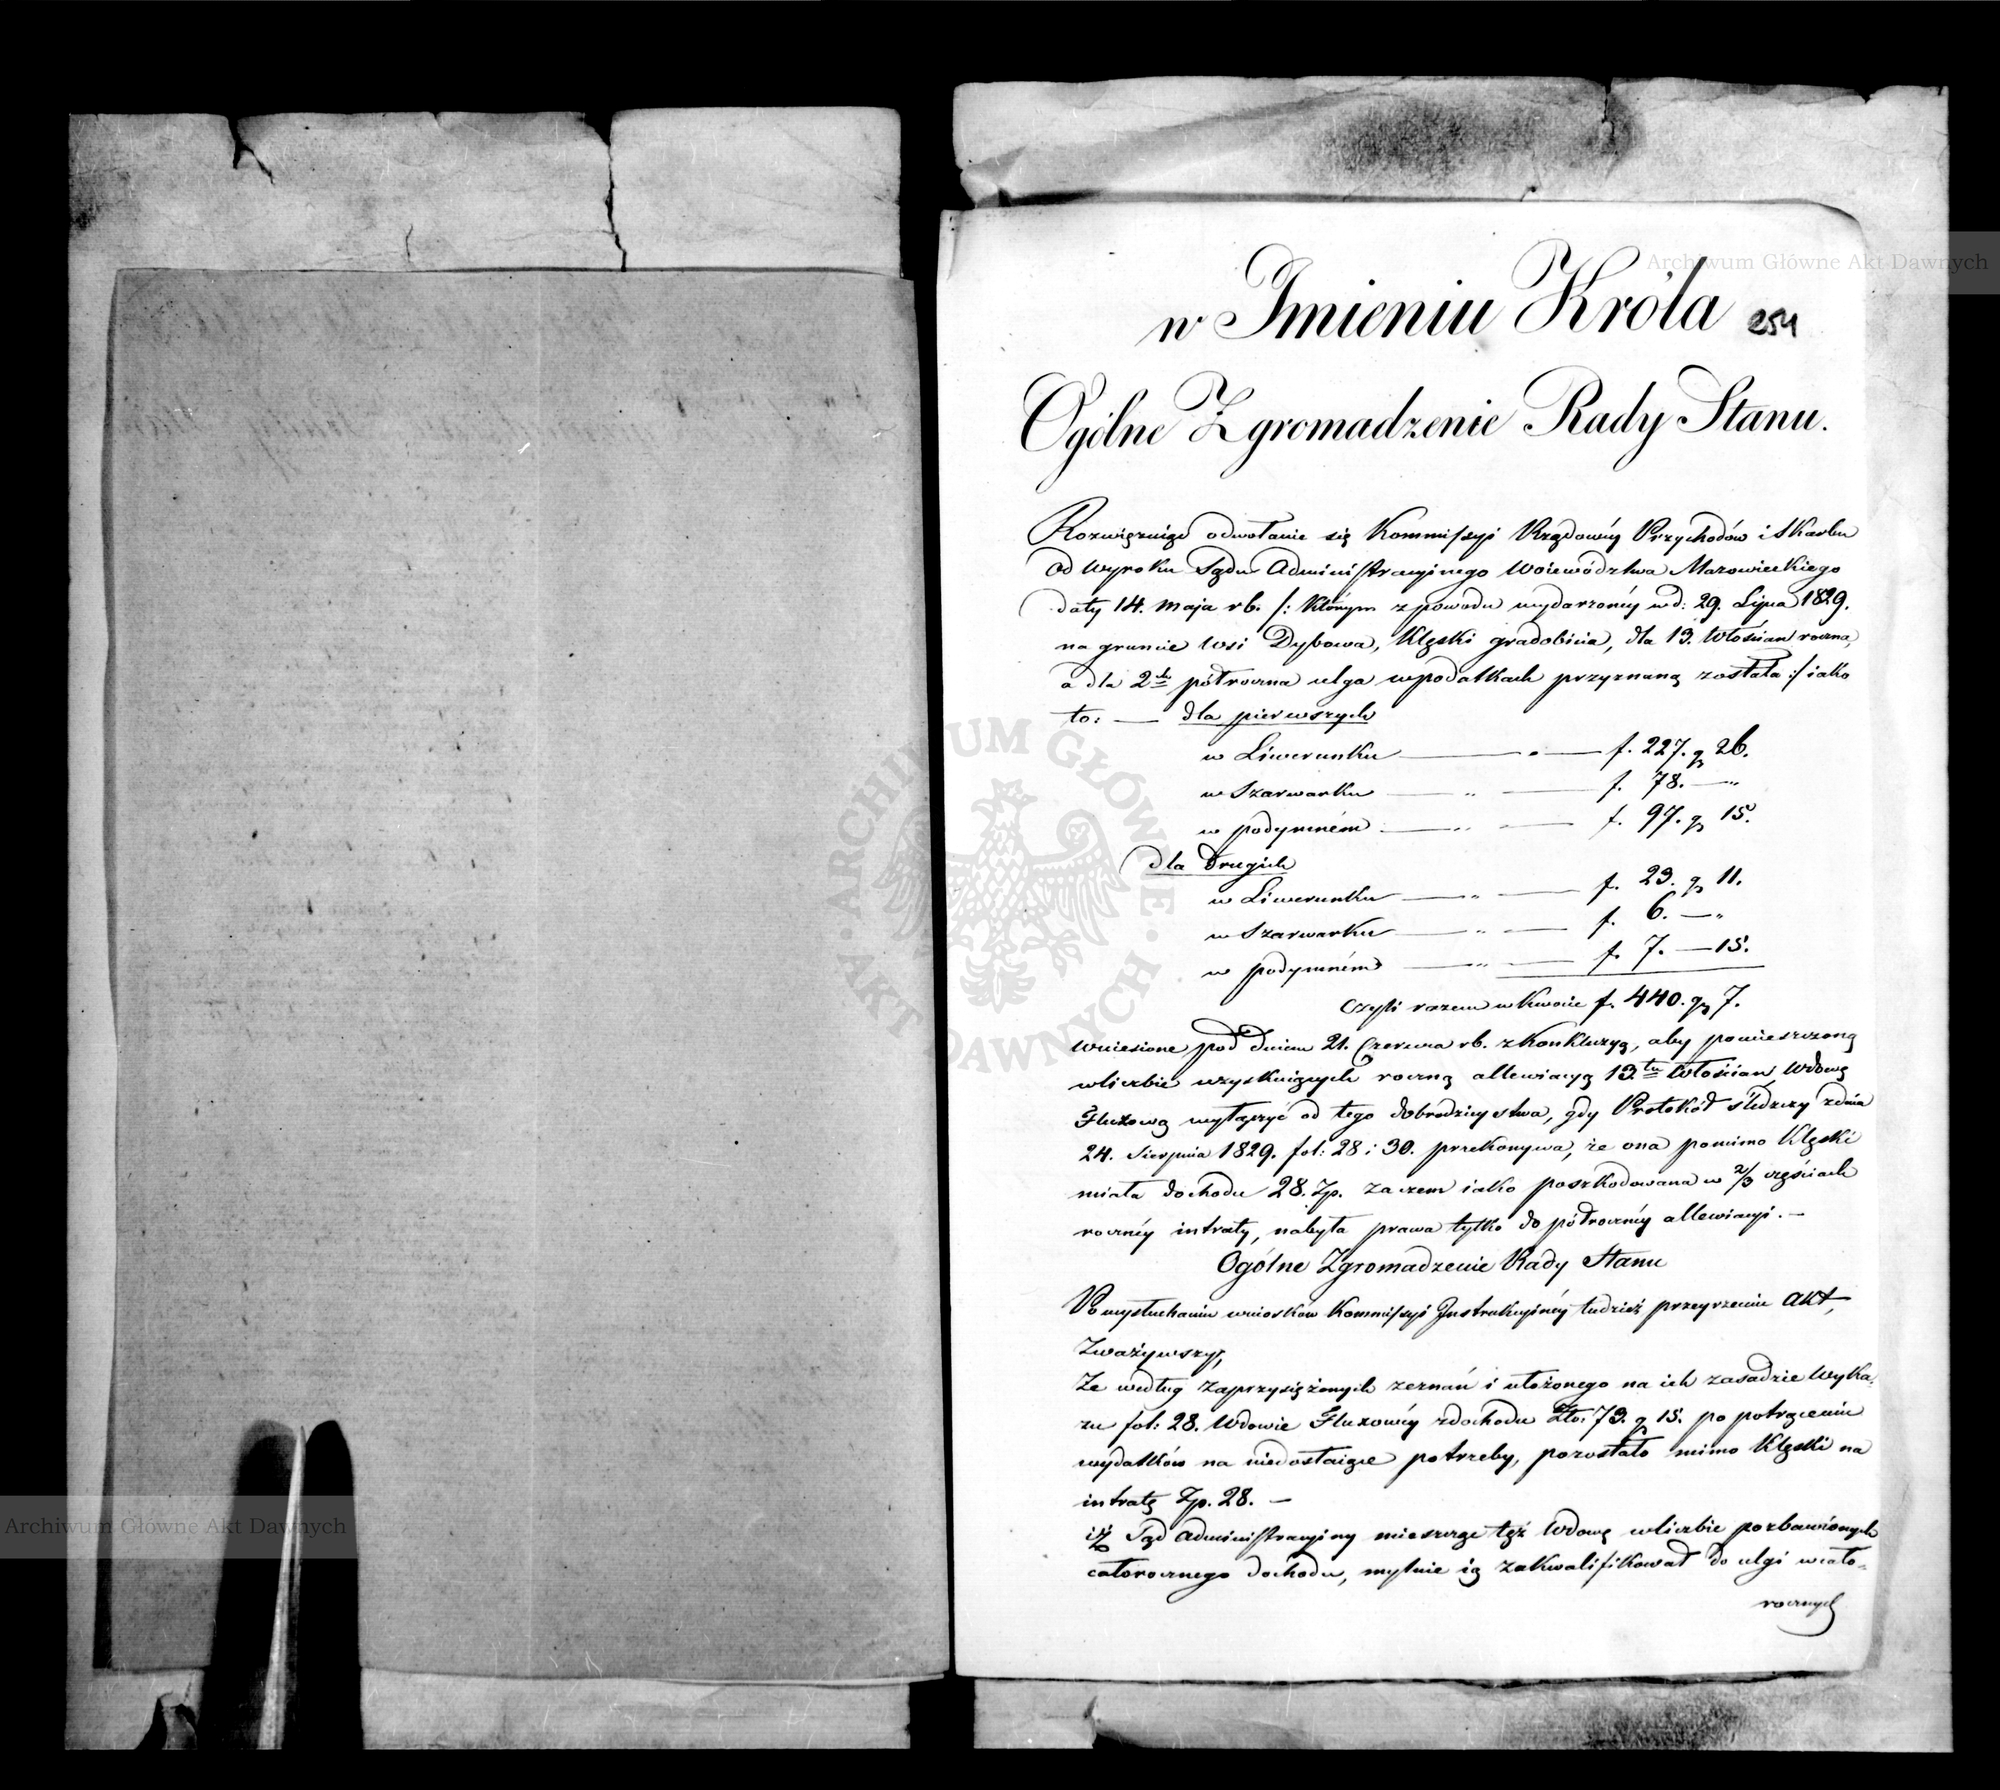 w Imieniu Króla
254
Ogólne Zgromadzenie Rady Stanu.
Rozwiązuiąc odwołanie się Kommissyi Rządowéy Przychodów i Skarbu
od wyroku Sądu Administracyinego Woiewództwa Mazowieckiego
daty 14. maja rb. /: którym z powodu wydarzonéy w d: 29. Lipca 1829.
na gruncie wsi Dybowa, klęski gradobicia, dla 13. Włościan roczna,
a dla 2ch półroczna ulga w podatkach przyznaną została :/ iako
to: — dla pierwszych
w Liwerunku — „ — f. 227. g 26.
w Szarwarku — „ — f. 78. — „
w podymném — „ — f. 97. g 15.
dla drugich
w Liwerunku — „ — f. 23. g 11.
w Szarwarku — „ — f. 6. — „
w podymném — „ — f. 7. — 15.
Czyli razem w kwocie f. 440. g 7.
wniesione pod dniem 21. Czerwca rb. z konkluzyą, aby pomieszczoną
w liczbie uzyskuiących roczną allewiacyą 13tu Włościan, Wdowę
Fluxową wyłączyć od tego dobrodzieystwa, gdy Protokół śledczy z dnia
24. Sierpnia 1829. fol: 28 i 30. przekonywa, że ona pomimo klęski
miała dochodu 28. Zp. zaczem iako poszkodowana w 2/3 częściach
rocznéy intraty, nabyła prawa tylko do półrocznéy allewiacyi. —
Ogólne Zgromadzenie Rady Stanu
Po wysłuchaniu wniosków Kommissyi Instrukcyinéy tudzież przeyrzeniu Akt,
Zważywszy,
Że według zaprzysiężonych zeznań i ułożonego na ich zasadzie Wyka-
zu fol: 28. Wdowie Fluxowéy z dochodu Zło: 73. g 15. po potrąceniu
wydatków na niedostaiące potrzeby, pozostało mimo klęski na
intratę Zp. 28. —
iż Sąd Administracyiny mieszcząc tęż Wdowę w liczbie pozbawionych
całorocznego dochodu, mylnie ią zakwalifikował do ulgi w cało-
rocznych
Archiwum Główne Akt Dawnych
Archiwum Główne Akt Dawnych
ARCHIWUM GŁÓWNE · AKT DAWNYCH ·